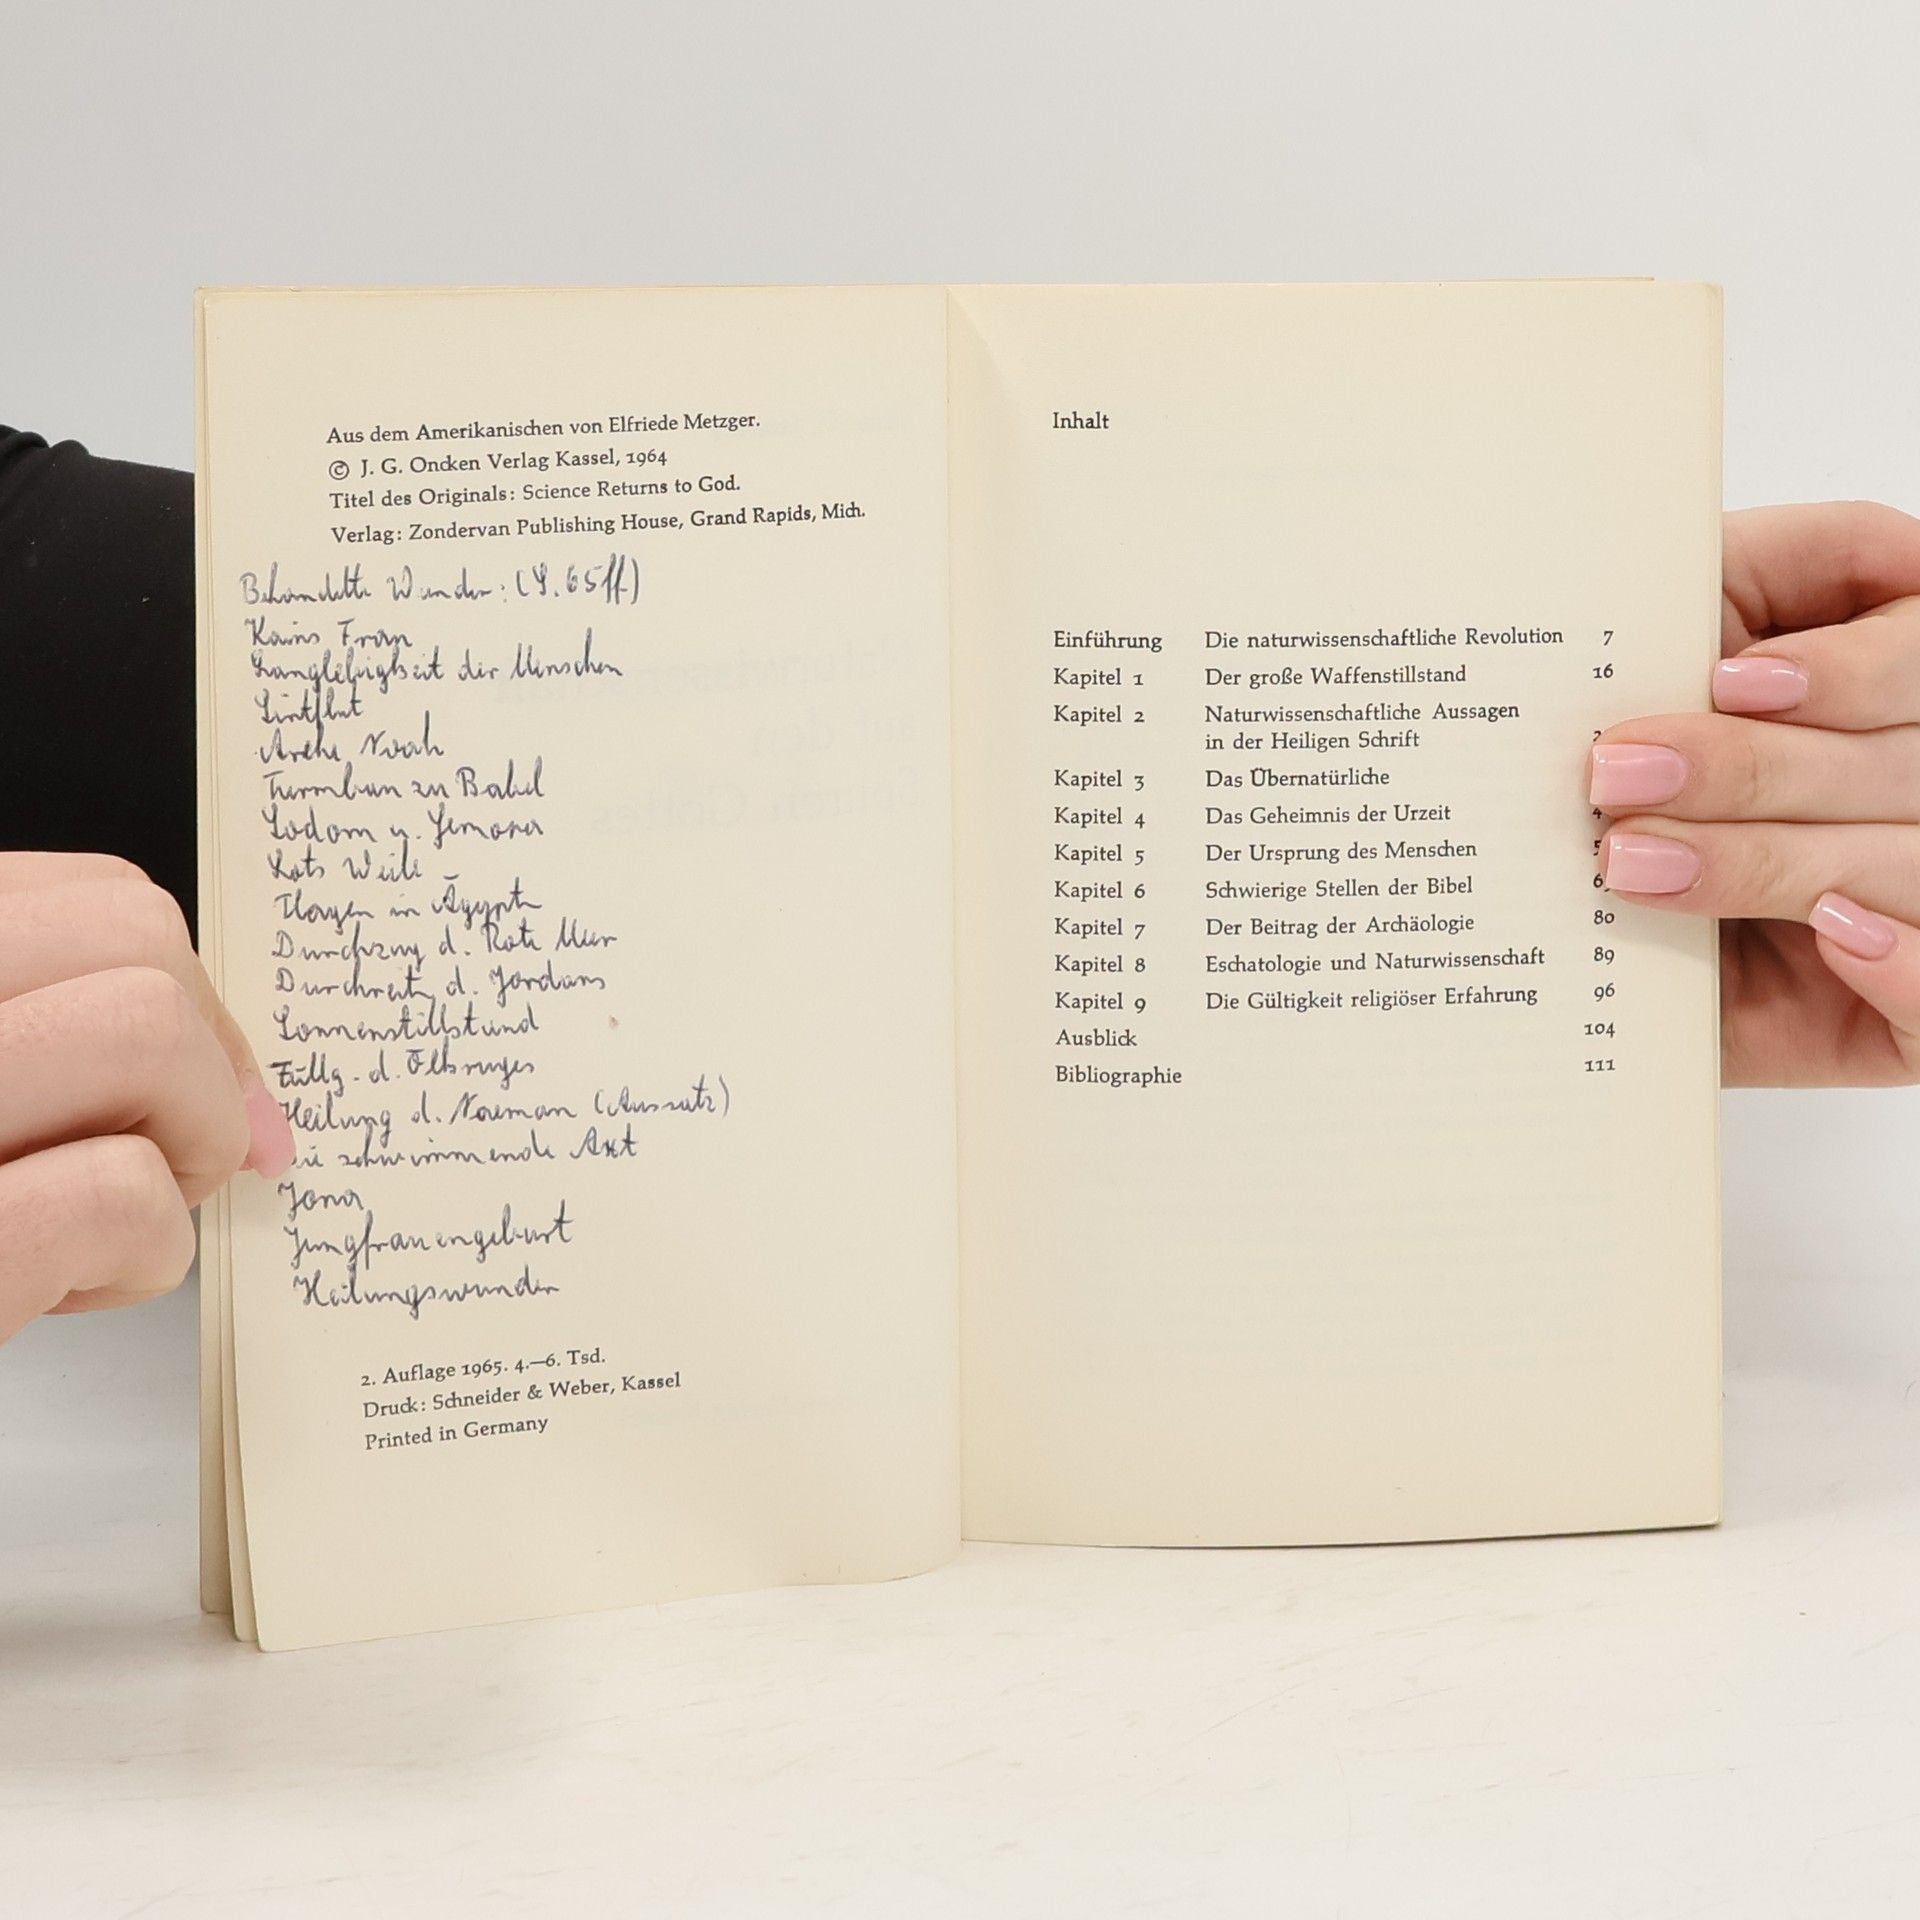 Aus dem Amerikanischen von Elfriede Metzger.
© J. G. Oncken Verlag Kassel, 1964
Titel des Originals: Science Returns to God.
Verlag: Zondervan Publishing House, Grand Rapids, Mich.
Behandelte Wunder: (S. 65ff)
Kains Frau
Langlebigkeit der Menschen
Sintflut
Arche Noah
Turmbau zu Babel
Sodom u. Gemora
Lots Weib
Plagen in Ägypten
Durchzug d. Rote Meer
d. Jordans
Sonnenstillstand
Füllg. d. Ölkruges
Heilung d. Naeman (Aussatz)
schwimmende Axt
Jona
Jungfrauengeburt
Heilungswunder
2. Auflage 1965. 4.—6. Tsd.
Druck: Schneider & Weber, Kassel
Printed in Germany
Inhalt
Einführung Die naturwissenschaftliche Revolution 7
Kapitel 1 Der große Waffenstillstand 16
Kapitel 2 Naturwissenschaftliche Aussagen
in der Heiligen Schrift
Kapitel 3 Das Übernatürliche
Kapitel 4 Das Geheimnis der Urzeit
Kapitel 5 Der Ursprung des Menschen
Kapitel 6 Schwierige Stellen der Bibel
Kapitel 7 Der Beitrag der Archäologie 80
Kapitel 8 Eschatologie und Naturwissenschaft 89
Kapitel 9 Die Gültigkeit religiöser Erfahrung 96
Ausblick 104
Bibliographie 111